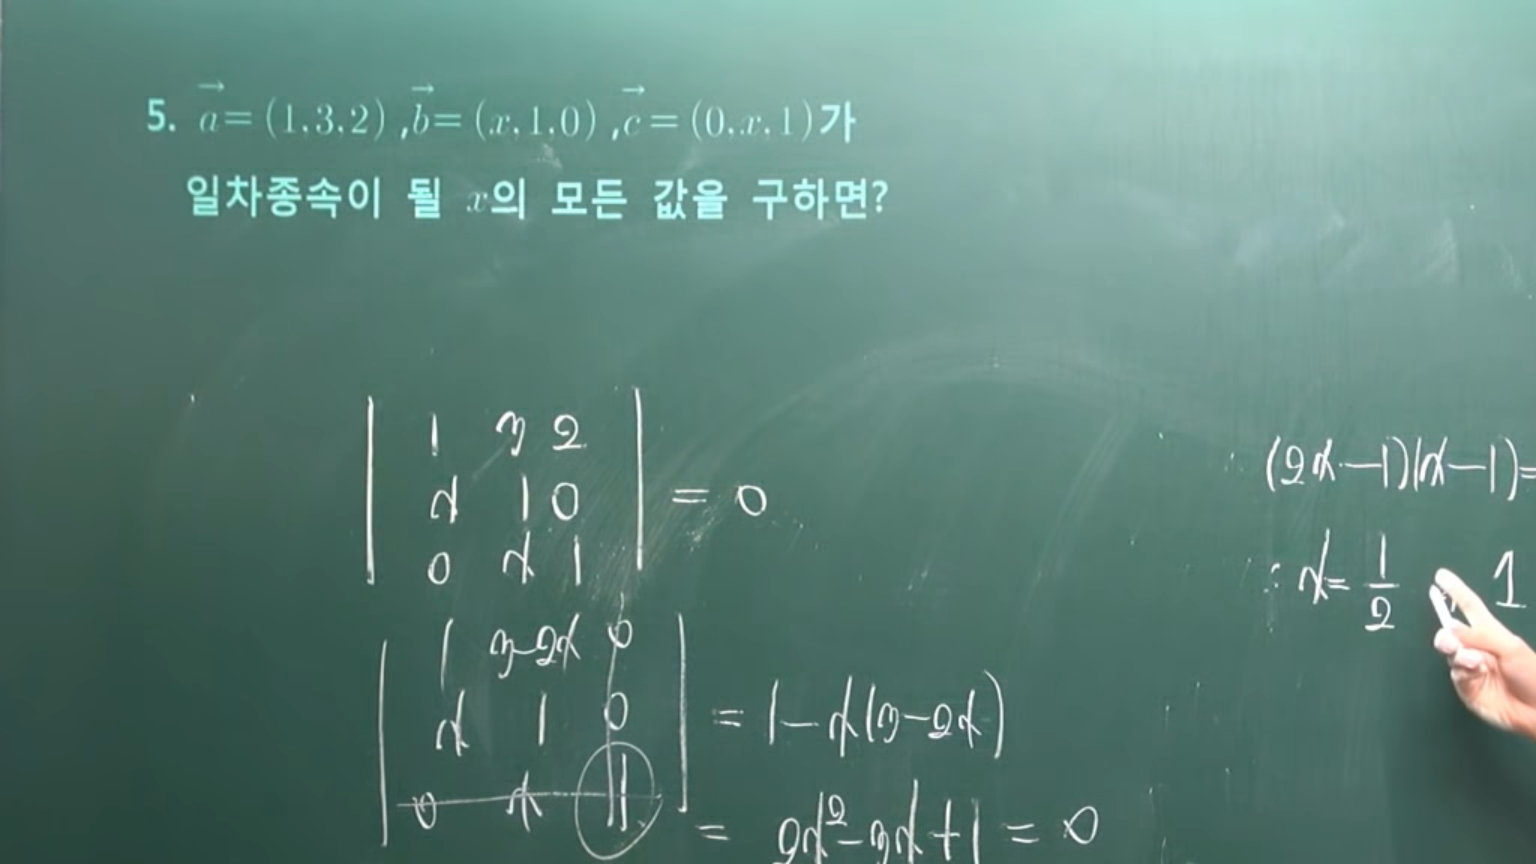 5. a⃗ = (1,3,2), b⃗ = (x,1,0), c⃗ = (0,x,1)가
일차종속이 될 x의 모든 값을 구하면?
| 1 3 2 |
| x 1 0 | = 0
| 0 x 1 |
| 1 3-2x 0 |
| x 1 0 | = 1-x(3-2x)
| 0 x 1 |
= 2x²-3x+1 = 0
(2x-1)(x-1)=
∴ x= 1/2, 1